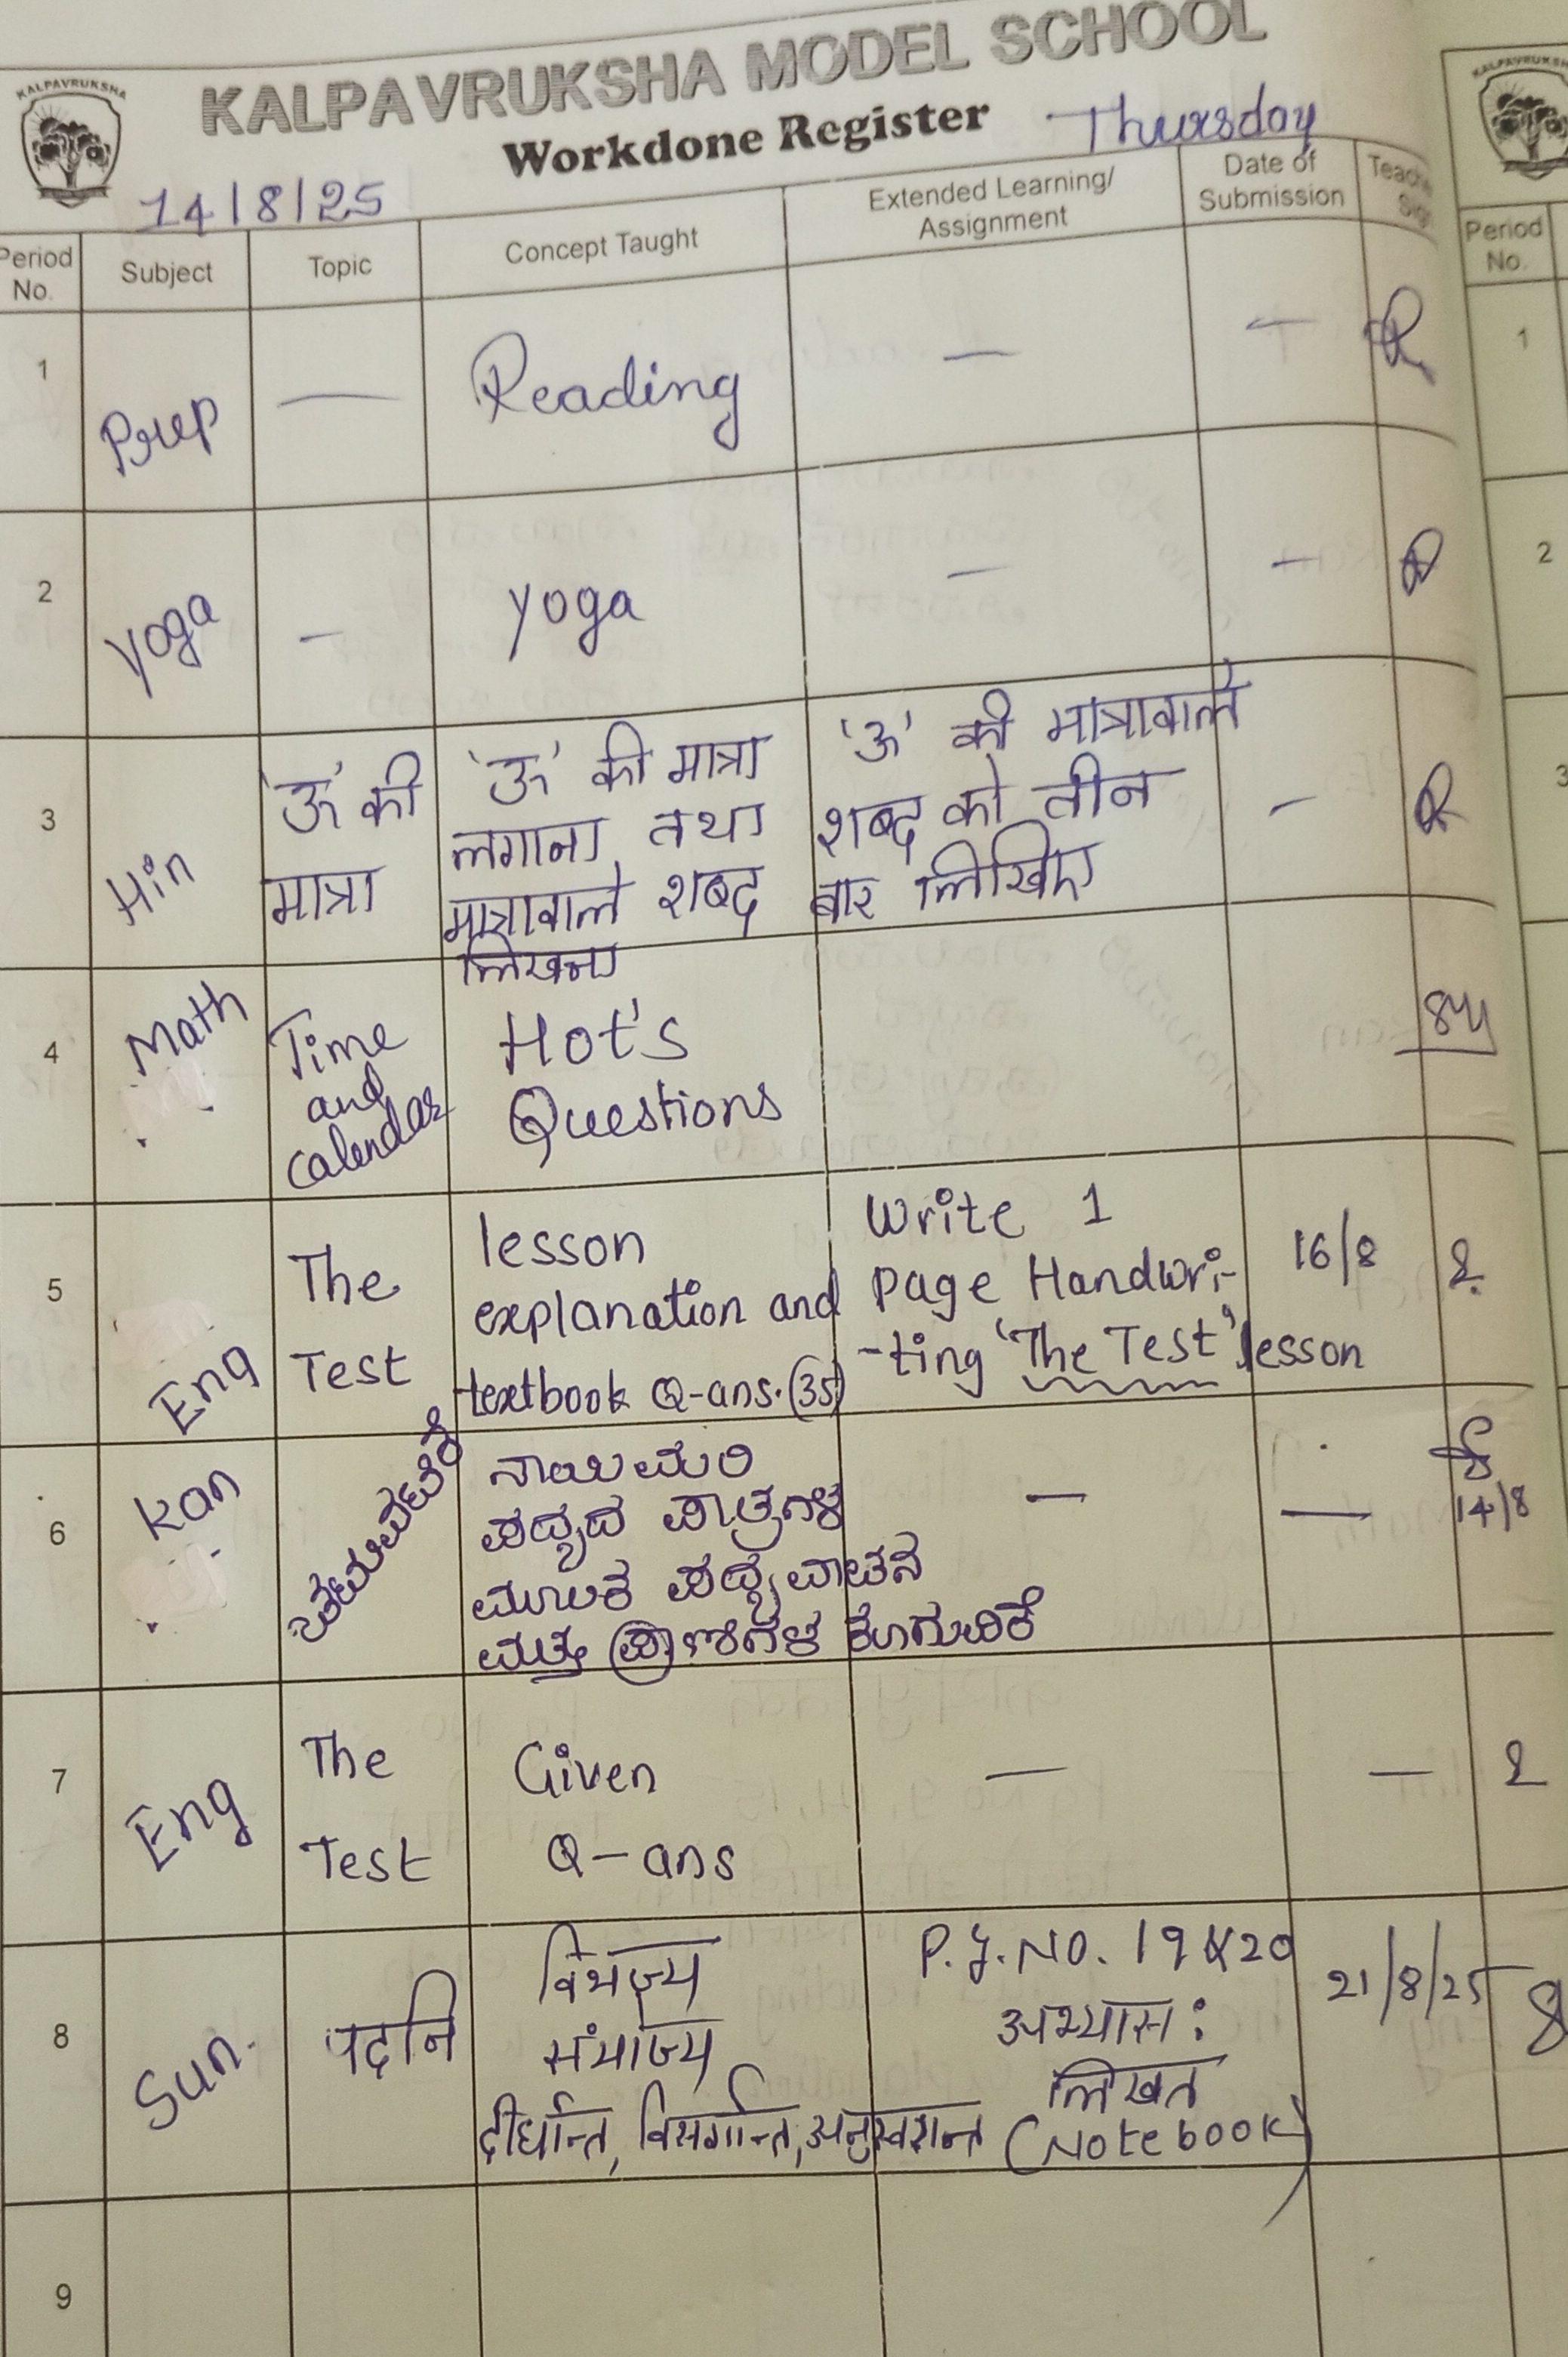 KALPAVRUKSHA
KALPAVRUKSHA MODEL SCHOOL
Workdone Register
Thursday
14/8/25
Period No.
Subject
Topic
Concept Taught
Extended Learning/
Assignment
Date of
Submission
1
Prep
—
Reading
—
—
2
Yoga
—
Yoga
—
—
3
Hin
'ऊ' की
मात्रा
'ऊ' की मात्रा
लगाना तथा
मात्रावाले शब्द
लिखना
'ऊ' की मात्रावाले
शब्द को तीन
बार लिखिए
—
4
Math
Time
and
calendar
Hot's
Questions
5
Eng
The
Test
lesson
explanation and
textbook Q-ans. (35)
Write 1
Page Handwri-
-ting 'The Test' lesson
16/8
6
Kan
ನಾಯಿಮರಿ
ಪದ್ಯದ ಪಾತ್ರಗಳ
ಮೂಲಕ ಪದ್ಯವಾಚನ
ಮತ್ತು ಪ್ರಾಣಿಗಳ ಕೂಗುವಿಕೆ
—
—
14/8
7
Eng
The
Test
Given
Q-ans
—
—
8
Sun.
पदानि
विभाज्य
संयोज्य
दीर्घान्त, विसर्गान्त, अनुस्वरान्त
P.g.No. 19 & 20
अभ्यास :
लिखत
(Notebook)
21/8/25
9
KALPAVRUKSH
Period
No.
1
2
3